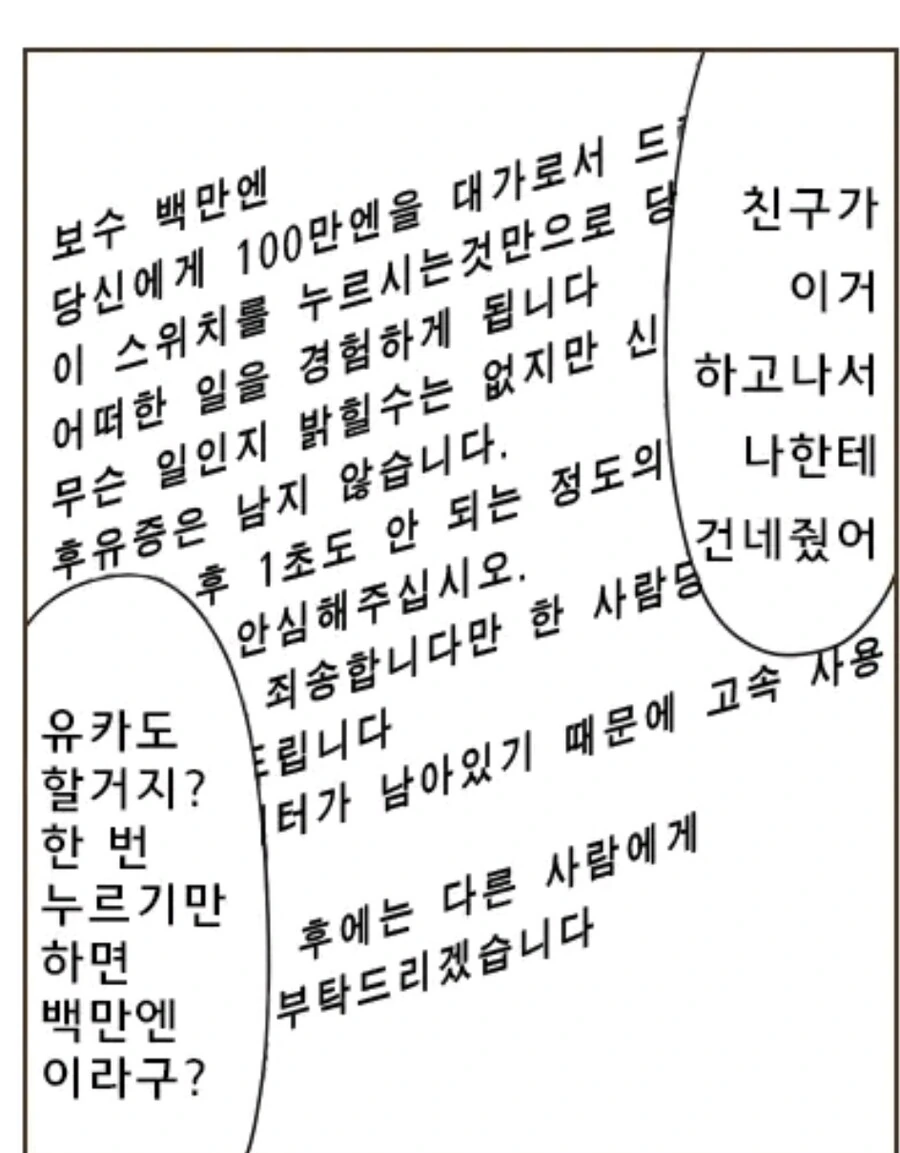 친구가
이거
하고나서
나한테
건네줬어
보수 백만엔
당신에게 100만엔을 대가로서
이 스위치를 누르시는것만으로
어떠한 일을 경험하게 됩니다
무슨 일인지 밝힐수는 없지만
후유증은 남지 않습니다.
후 1초도 안 되는 정도의
안심해주십시오.
죄송합니다만 한 사람당
드립니다
터가 남아있기 때문에 고속 사용
후에는 다른 사람에게
부탁드리겠습니다
유카도
할거지?
한 번
누르기만
하면
백만엔
이라구?